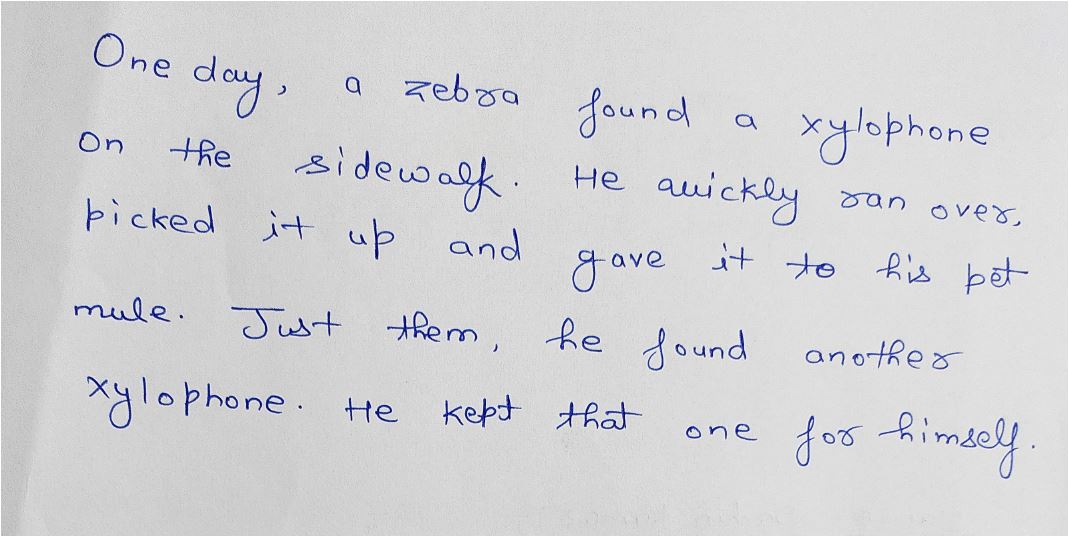 One day, a zebra found a xylophone
on the sidewalk. He quickly ran over,
picked it up and gave it to his pet
mule. Just them, he found another
xylophone. He kept that one for himself.